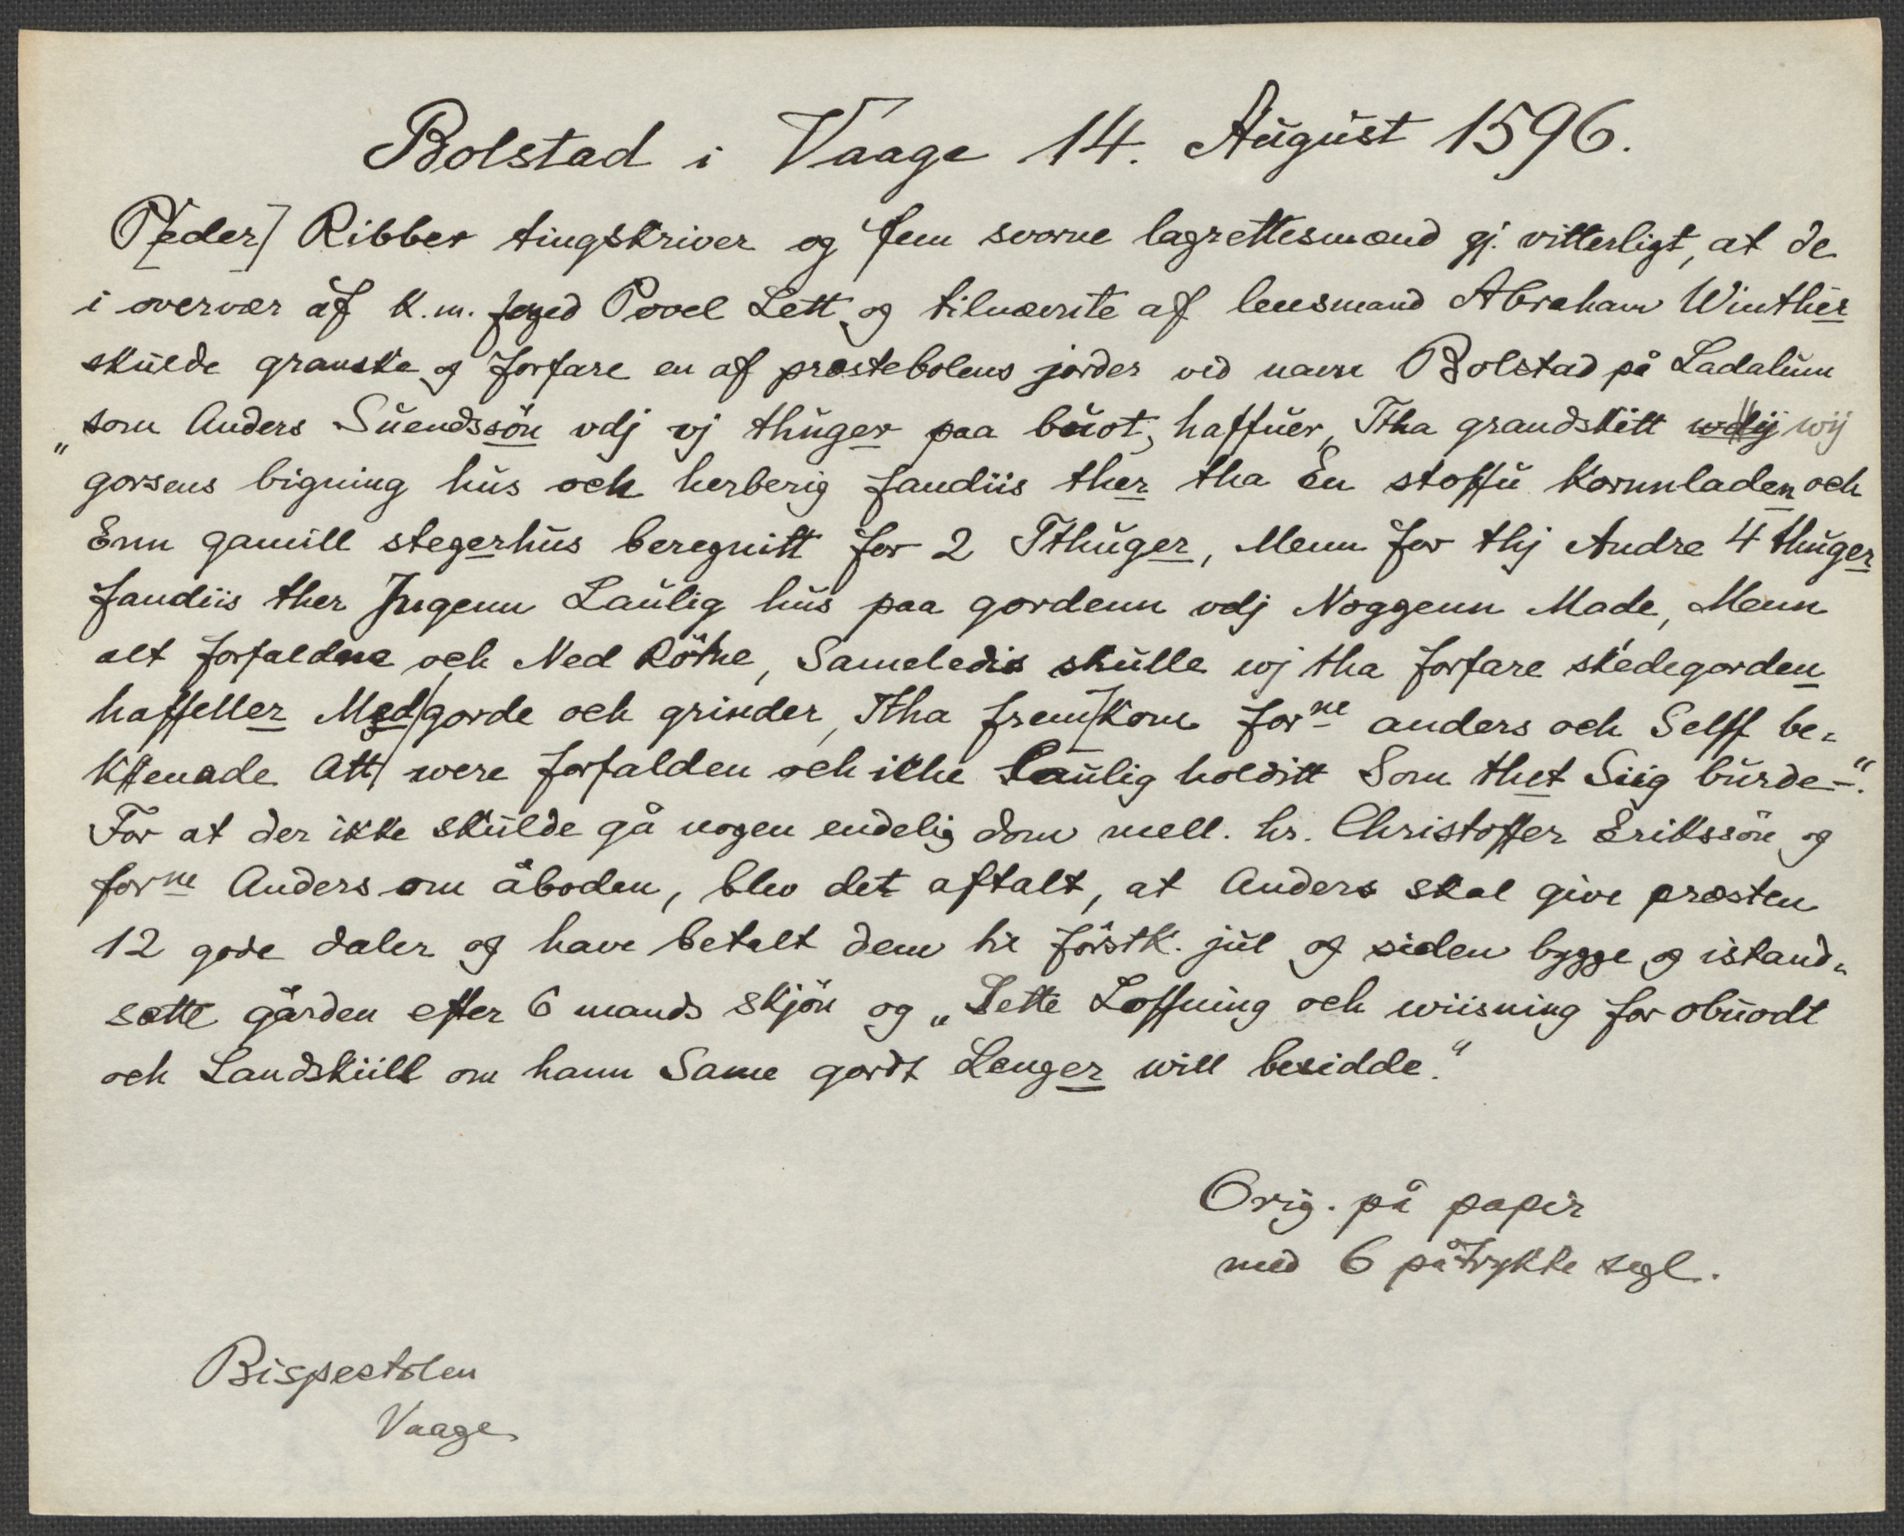 Bolstad i Vaage 14. August 1596.
P[eder] Ribber tingskriver og fem svorne lagrettesmænd gj. vitterligt, at de
i overvær af k.m. foged Povel Lett og tilnævnte af lensmand Abraham Winther
skulde granske og forfare en af præstebolens jorder ved navn Bolstad på Ladalum
„som Anders Suendssön vdj vj thuger paa buot, haffuer, Ttha grandskitt wdij wij
gorsens bigning hus och herberig fandiis ther tha En stoffu kornnladen och
Enn gamill stegerhus beregnitt for 2 Tthuger, Menn for thj Andre 4 thuger
fandiis ther Jngenn Laulig hus paa gordenn vdj Noggenn Made, Menn
alt forfaldne och Ned Röthe, Sameledis skulle wj tha forfare skedegorden
haffeller Med/gorde och grinder, Ttha frem/kom forne anders och Selff be-
kienade Att/ were forfalden och ikke Laulig holditt Som thet Siig burde-“.
For at der ikke skulde gå nogen endelig dom mell. hr. Christoffer Erikssön og
forne Anders om åboden, blev det aftalt, at Anders skal give præsten
12 gode daler og have betalt dem til förstk. jul og siden bygge og istand-
sætte gården efter 6 mands skjön og „Sette Loffning och wiisning for obuodt
och Landskiill om hann Same gordt Lenger will besidde.“
Orig. på papir
med 6 påtrykte segl.
Bispestolen
Vaage